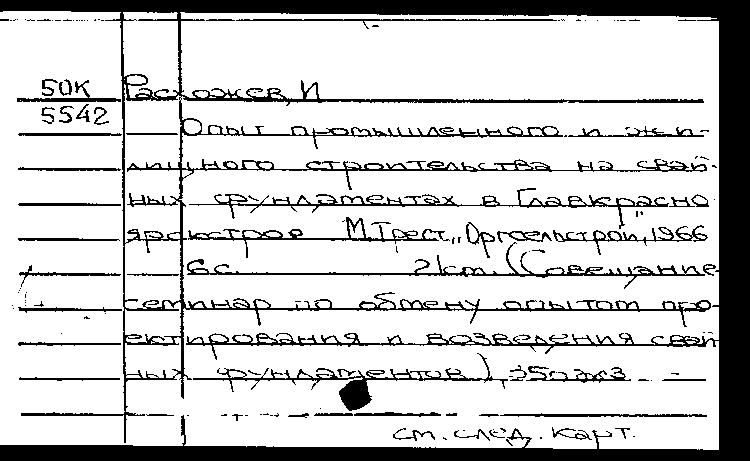 50К Расхожев, И
5542
Опыт промышленного и жи-
лищного строительства на свай-
ных фундаментах в Главкрасно
ярскстрое М. Трест "Оргсельстрой", 1966
6с. 21см. (Совещание-
семинар по обмену опытом про-
ектирования и возведения свай
ных фундаментов), 350экз
см. след. карт.